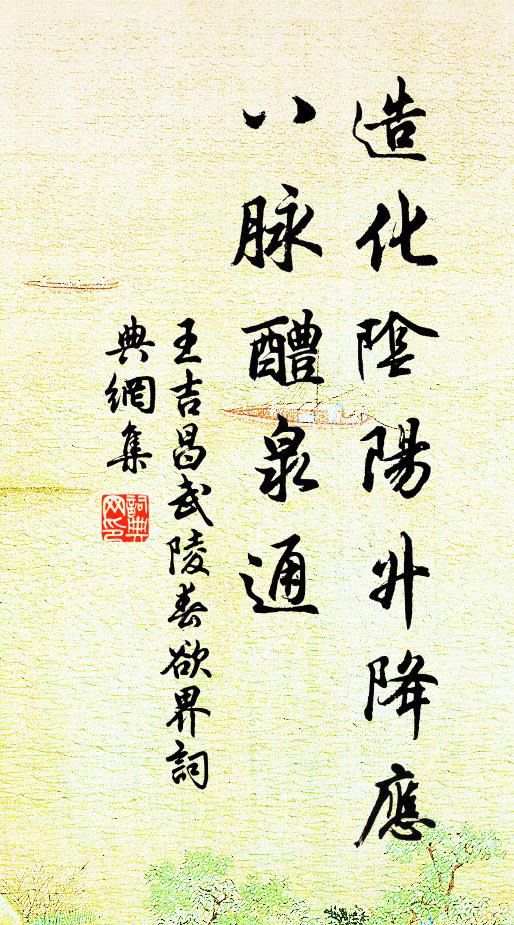 造化陰陽升降應
八脉醴泉通
王吉昌武陵春欲界詞
典網集
詞典网印